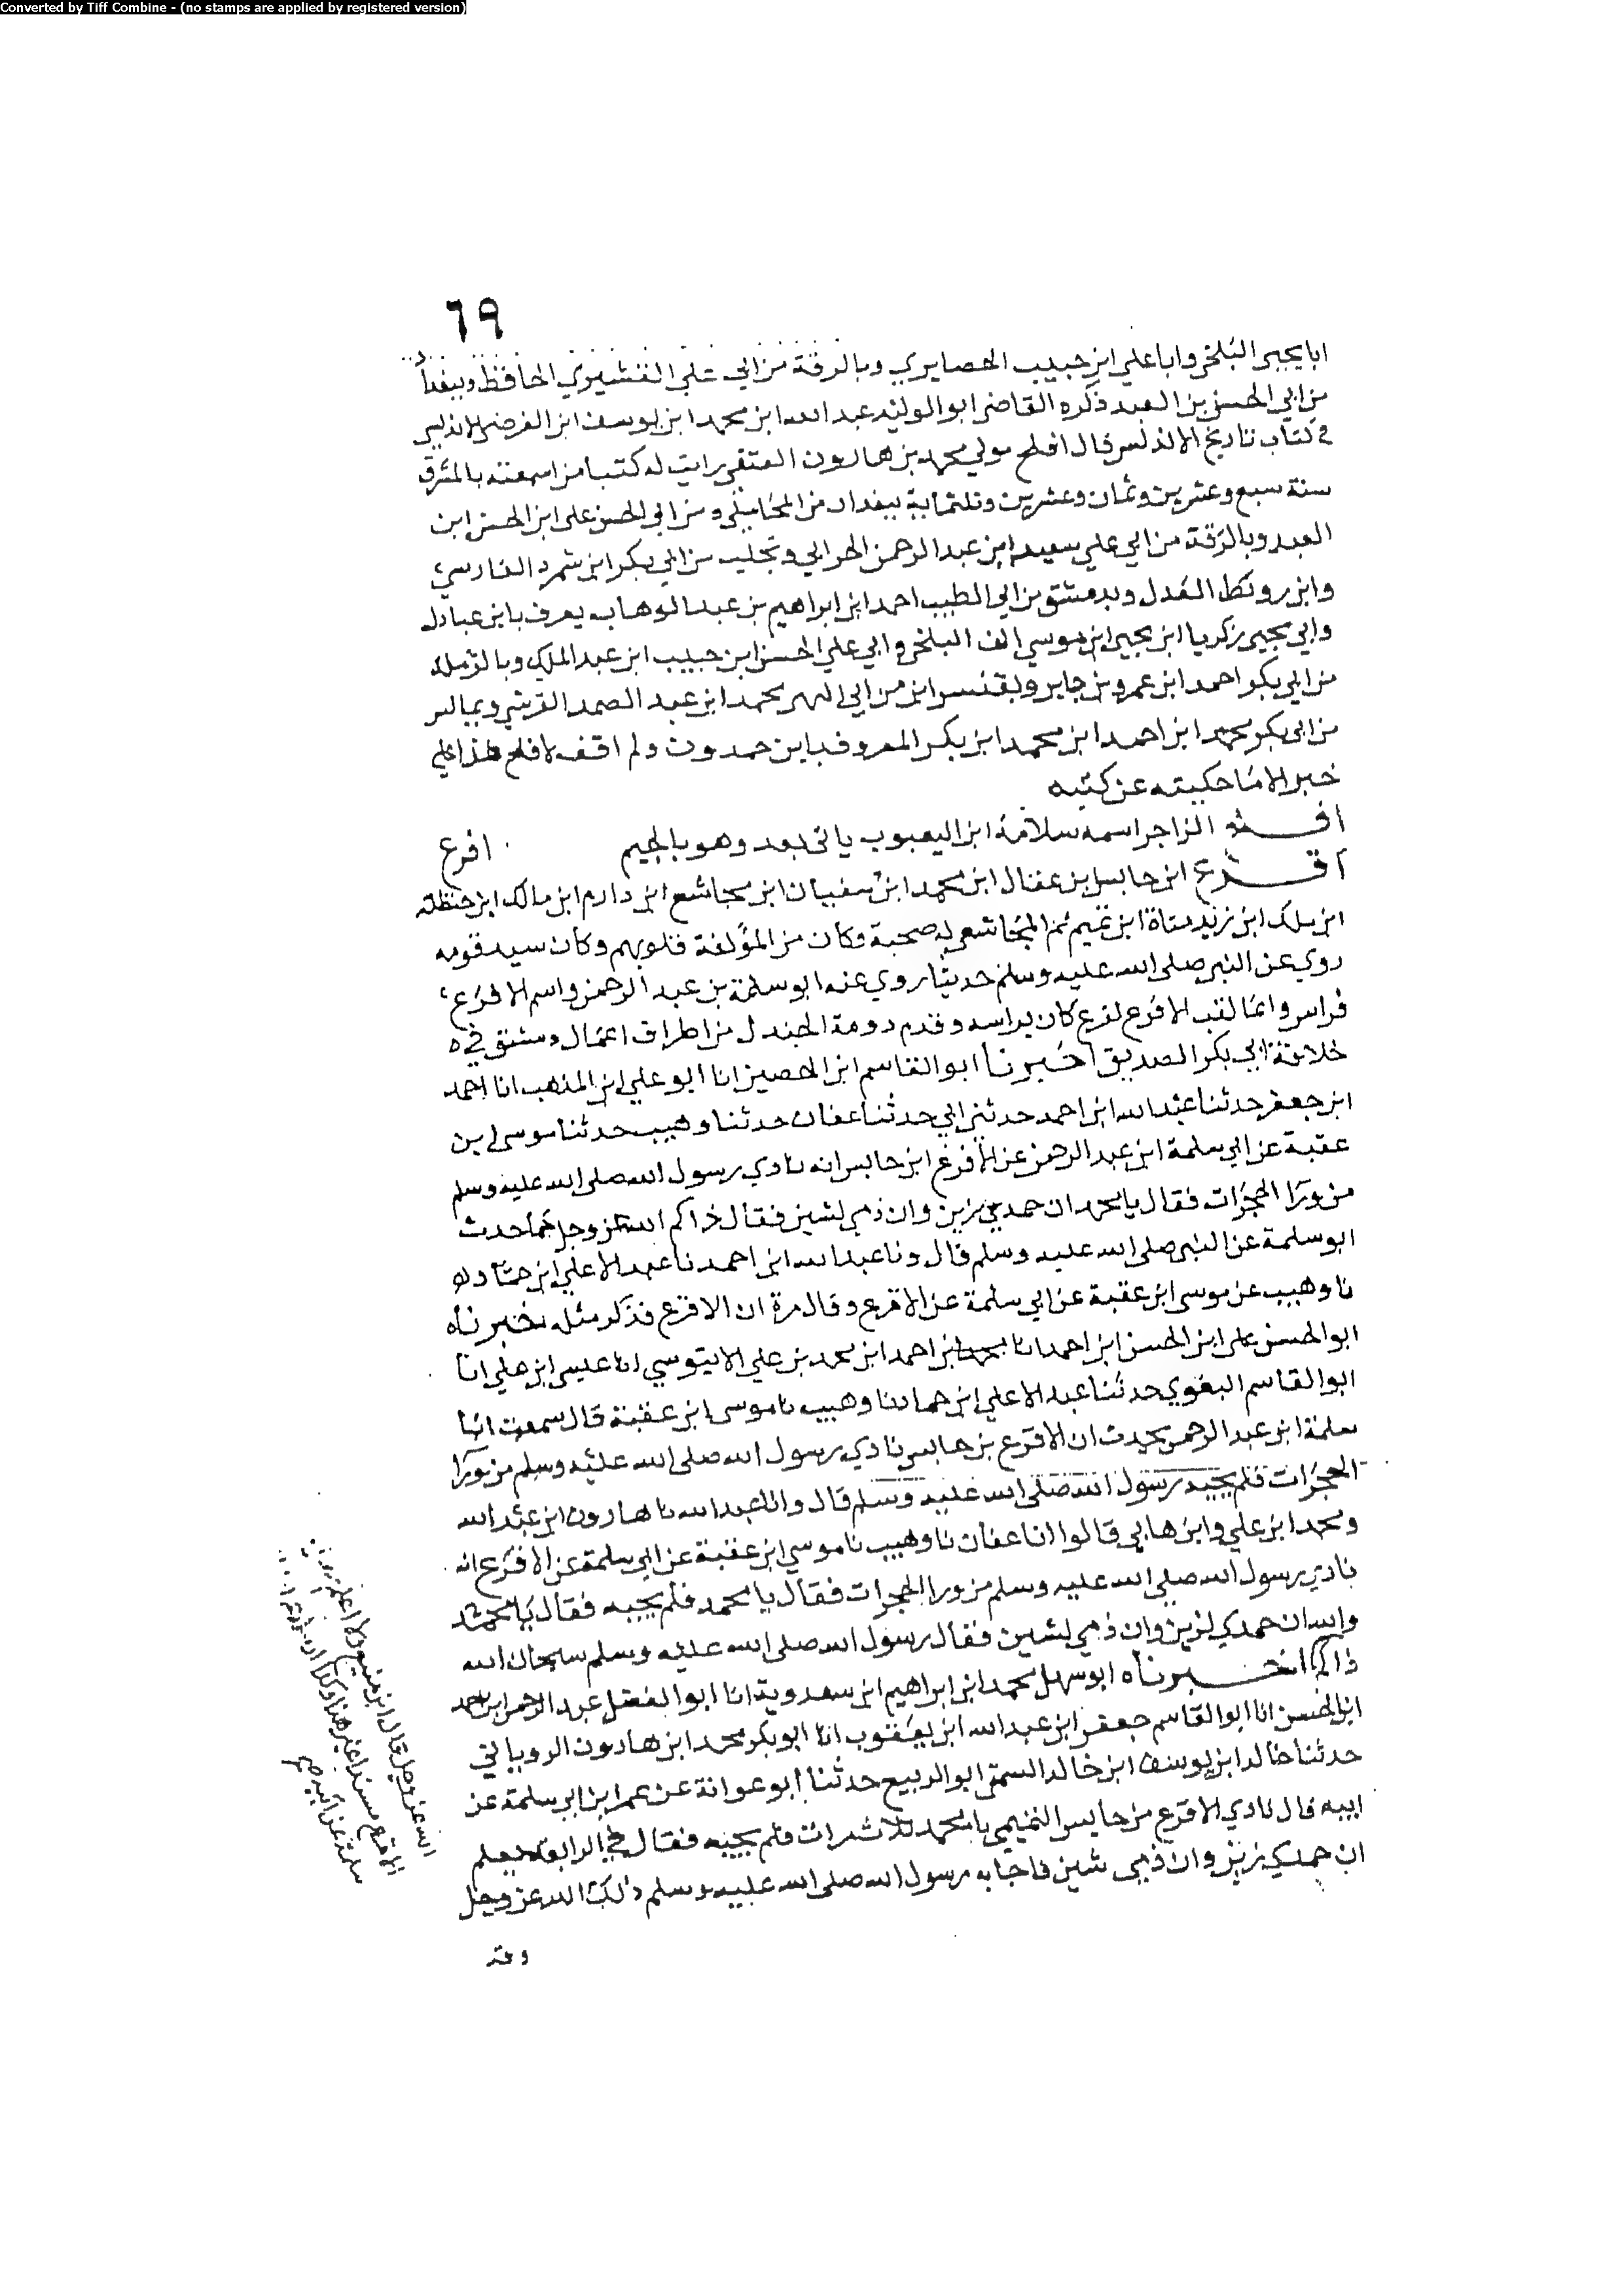 Converted by Tiff Combine - (no stamps are applied by registered version)
٦٩
ابا يحيى البلخي وابا علي ابن حبيب الحصايري وبالرقة من ابي علي القشيري الحافظ وببغداد
من ابي الحسن بن العبد ذكره القاضي ابو الوليد عبد الله ابن محمد ابن يوسف ابن الفرضي الاندلسي
في كتاب تاريخ الاندلس قال افلح مولي محمد بن هارون العتقي رايت له كتبا من اسمعته بالمشرق
سنة سبع وعشرين وثمان وعشرين وثلثماية ببغداد من المحاملي ومن ابي الحسن علي ابن الحسن ابن
العبد وبالرقة من ابي علي سعيد ابن عبد الرحمن الحراني وبحلب من ابي بكر ابن شمرد الفارسي
وابن رويط العدل وبدمشق من ابي الطيب احمد ابن ابراهيم بن عبد الوهاب يعرف بابن عبادل
وابي يحيى زكريا ابن يحيى ابن موسي البلخي وابي علي الحسن ابن حبيب ابن عبد الملك وبالرملة
من ابي بكر احمد ابن عمرو بن جابر وبقنسرين من ابي محمد ابن عبد الصمد القرشي
من ابي بكر محمد ابن احمد ابن محمد ابن بكر المعروف بابن حمدون ولم اقف لافلح هذا علي
خبر الا ما حكيته عن كتبه
الزاجر اسمه سلامة ابن اليعبوب ياتي بعد وهو بالجيم افرع
اقرع ابن حابس بن عقال ابن محمد ابن سفيان ابن مجاشع ابن دارم ابن مالك ابن حنظلة
ابن ملك ابن زيد مناة ابن تميم ثم المجاشعي له صحبة وكان من المؤلفة قلوبهم وكان سيد قومه
روي عن النبي صلى الله عليه وسلم حديثا روي عنه ابو سلمة بن عبد الرحمن واسم الاقرع
فراس وانما لقب الاقرع لقرع كان براسه وقدم دومة الجندل من اطراف اعمال دمشق في
خلافة ابي بكر الصديق اخبرنا ابو القاسم ابن الحصين انا ابو علي ابن المذهب انا احمد
ابن جعفر حدثنا عبد الله ابن احمد حدثني ابي حدثنا عفان حدثنا وهيب حدثنا موسى بن
عقبة عن ابي سلمة ابن عبد الرحمن عن الاقرع ابن حابس انه نادي رسول الله صلى الله عليه وسلم
من ورا الحجرات فقال يا محمد ان حمدي زين وان ذمي لشين فقال ذاكم الله عز وجل كما حدث
ابو سلمة عن النبي صلى الله عليه وسلم قال ونا عبد الله ابن احمد نا عبد الاعلي ابن حماد
نا وهيب عن موسى ابن عقبة عن ابي سلمة عن الاقرع وقال مرة ان الاقرع فذكر مثله اخبرناه
ابو الحسن علي ابن الحسن ابن احمد انا محمد ابن احمد ابن محمد بن علي الابنوسي انا عيسى ابن علي انا
ابو القاسم البغوي حدثنا عبد الاعلي ابن حماد نا وهيب نا موسى ابن عقبة قال سمعت ابا
سلمة ابن عبد الرحمن يحدث ان الاقرع بن حابس نادي رسول الله صلى الله عليه وسلم من ورا
الحجرات فلم يجبه رسول الله صلى الله عليه وسلم قال وانا عبد الله نا هارون ابن عبد الله
ومحمد ابن علي وابن هاني قالوا انا عفان نا وهيب نا موسى ابن عقبة عن ابي سلمة عن الاقرع انه
نادي رسول الله صلي الله عليه وسلم من ورا الحجرات فقال يا محمد فلم يجبه فقال يا محمد
والله ان حمدي لزين وان ذمي لشين فقال رسول الله صلى الله عليه وسلم سبحان الله
ذاكم اخبرناه ابو سهل محمد ابن ابراهيم ابن سعدوية انا ابو الفضل عبد الرحمن ابن احمد
ابن الحسن انا ابو القاسم جعفر ابن عبد الله ابن يعقوب انا ابو بكر محمد ابن هارون الروياني
حدثنا خالد ابن يوسف ابن خالد السمتي ابو الربيع حدثنا ابو عوانة عن عمر ابن ابي سلمة عن
ابيه قال نادي الاقرع بن حابس التميمي يا محمد ثلاث مرات فلم يجبه فقال في الرابعة
ان حمدي زين وان ذمي شين فاجابه رسول الله صلى الله عليه وسلم ذلك الله عز وجل
الله عز وجل قال ابن منيع ولا اعلم
الاقرع مسندا غير هذا وكذا
سلمة عن ابيه صح